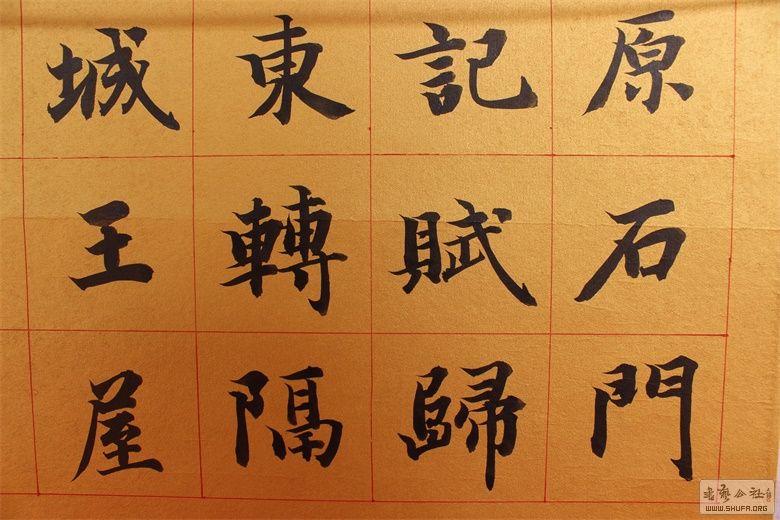 原石門
記賦歸
東轉隔
城王屋
書藝公社
WWW.SHUFA.ORG